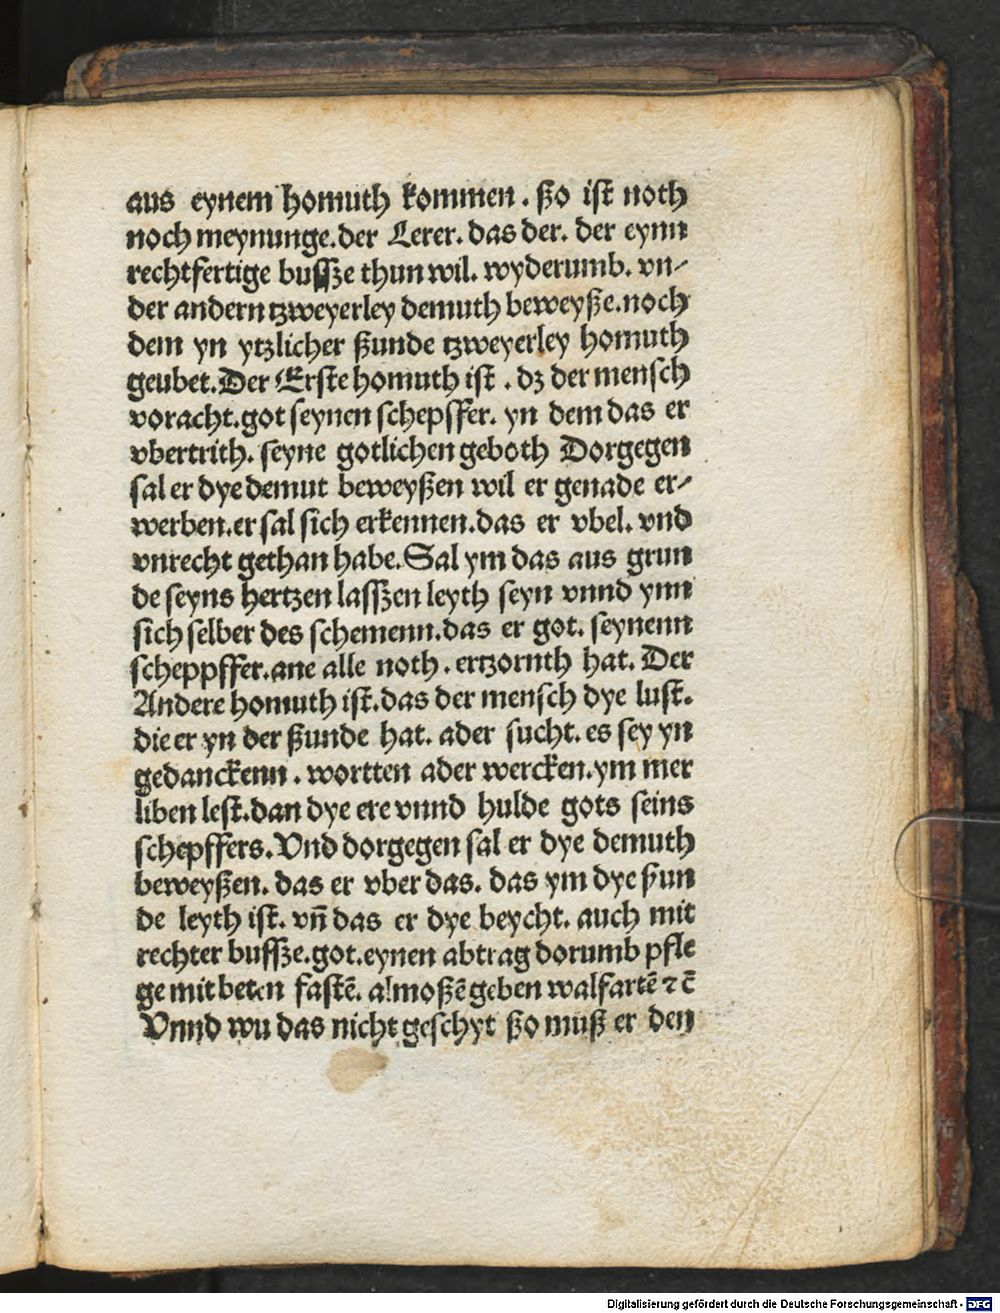 aus eynem homuth kommen. ßo ist noth
noch meynunge. der Lerer. das der. der eynn
rechtfertige busſze thun wil. wyderumb. vn⸗
der andern tzweyerley demuth beweyße. noch
dem yn ytzlicher ßunde tzweyerley homuth
geubet. Der Erste homuth ist. dz der mensch
voracht. got seynen schepffer. yn dem das er
vbertrith. seyne gotlichen geboth Dorgegen
sal er dye demut beweyßen wil er genade er⸗
werben. er sal sich erkennen. das er vbel. vnd
vnrecht gethan habe. Sal ym das aus grun
de seyns hertzen lasſzen leyth seyn vnnd ynn
sich selber des schemenn. das er got. seynenn
scheppffer. ane alle noth. ertzornth hat. Der
Andere homuth ist. das der mensch dye lust.
die er yn der ßunde hat. ader sucht. es sey yn
gedanckenn. wortten ader wercken. ym mer
liben lest. dan dye ere vnnd hulde gots seins
schepffers. Vnd dorgegen sal er dye demuth
beweyßen. das er vber das. das ym dye ßun
de leyth ist. vn̄ das er dye beycht. auch mit
rechter busſze. got. eynen abtrag dorumb pfle
ge mit beten fastē. almoßē geben walfartē ⁊ c̄
Vnnd wu das nicht geschyt ßo muß er den
Digitalisierung gefördert durch die Deutsche Forschungsgemeinschaft - DFG